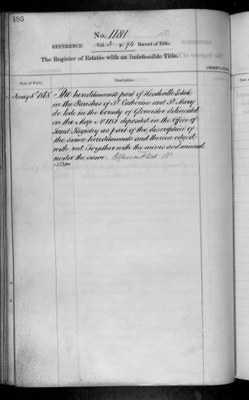 185
No. 1181
REFERENCE Record of Title.
The Register of Estates with an Indefeasible Title.
Date of Entry. Description.
1868 The hereditaments part of Heathville Estate
in the Parishes of St Catherine and St Mary
de lode in the County of Gloucester delineated
on the Map No 1181 deposited in the Office of
Land Registry as part of the description of
the same hereditaments and thereon edged
with red Together with the mines and minerals
under the same.